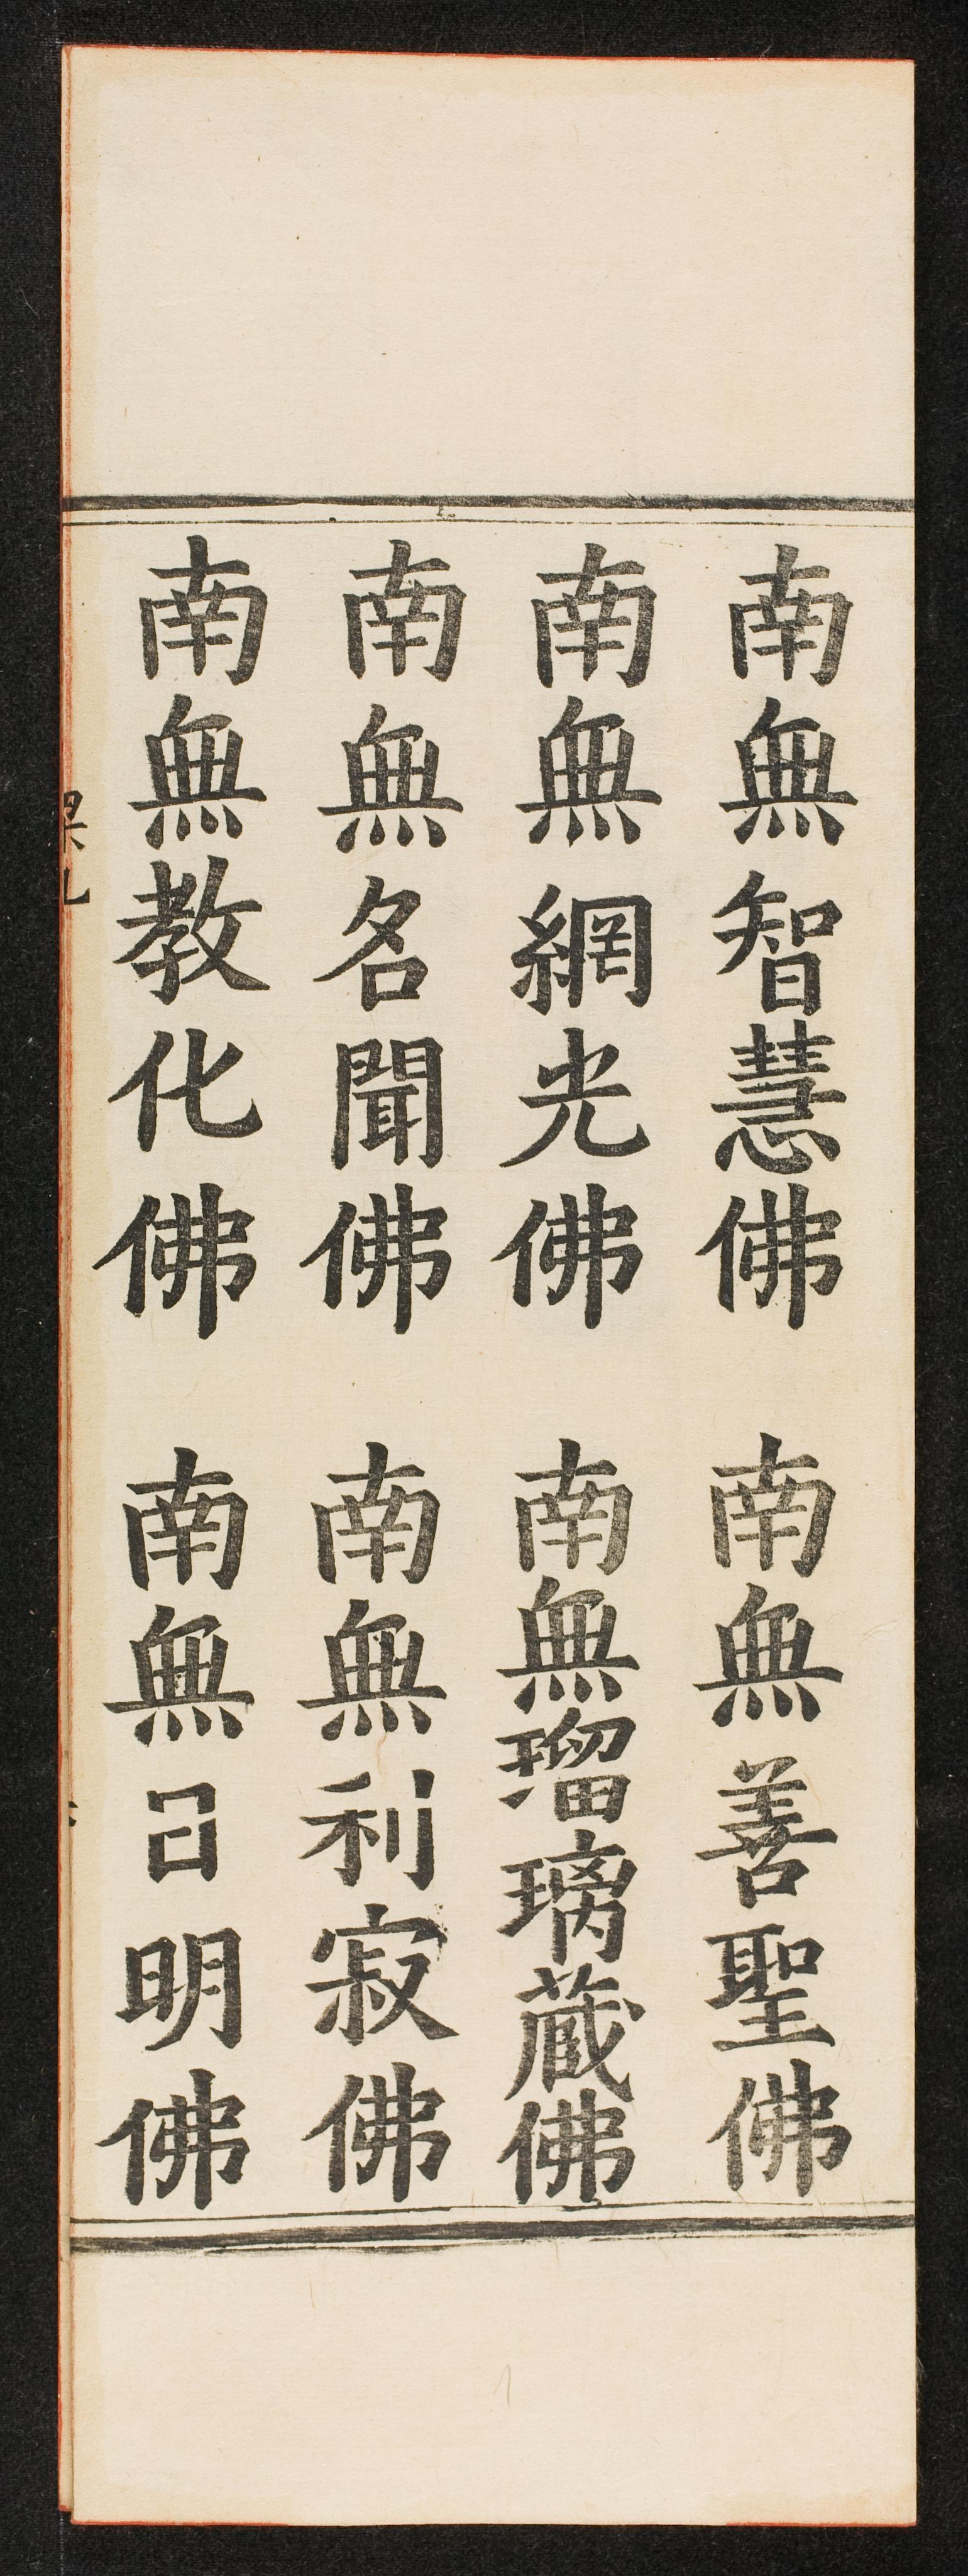 南無智慧佛　南無善聖佛
南無網光佛　南無瑠璃藏佛
南無名聞佛　南無利寂佛
南無教化佛　南無日明佛